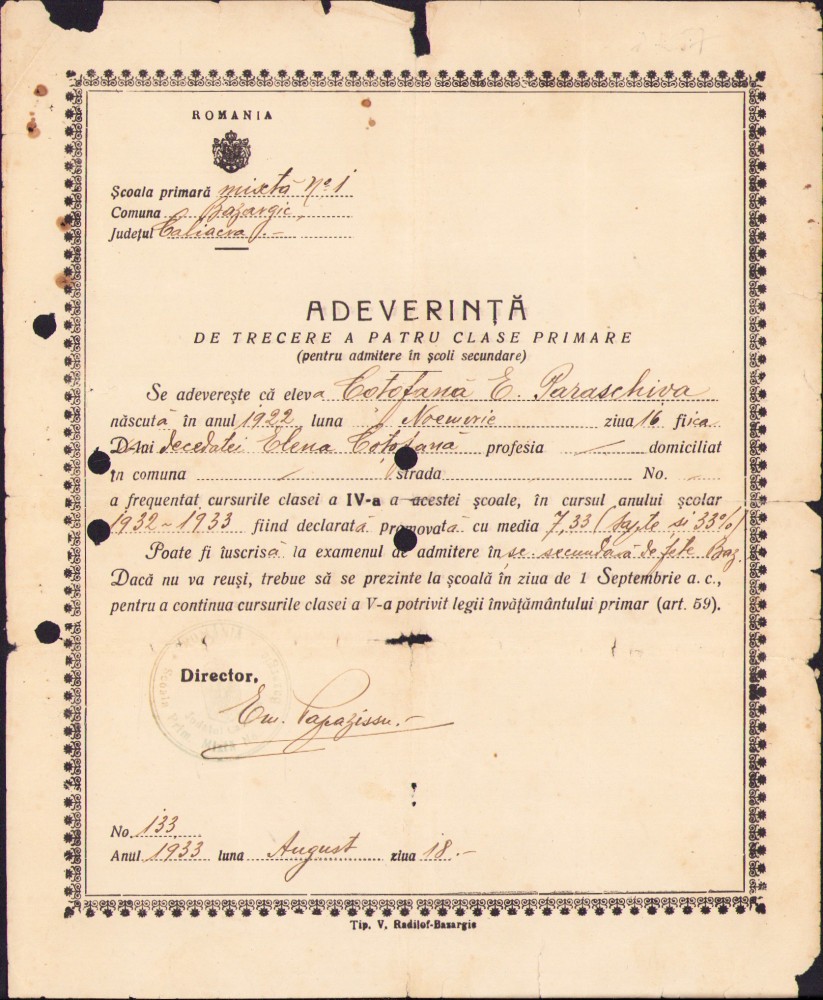 ROMANIA
Școala primară mixtă No 1
Comuna Bazargic
Județul Caliacra.-
ADEVERINȚĂ
DE TRECERE A PATRU CLASE PRIMARE
(pentru admitere în școli secundare)
Se adeverește că eleva Cotofană E. Paraschiva
născută în anul 1922 luna Noemvrie ziua 16 fiica
D-lui decedatei Elena Cotofană profesia — domiciliat
în comuna — strada No. —
a frequentat cursurile clasei a IV-a a acestei școale, în cursul anului școlar
1932-1933 fiind declarată promovată cu media 7,33 (șapte și 33%)
Poate fi îuscrisă la examenul de admitere în sc. secundară de fete Baz.
Dacă nu va reuși, trebue să se prezinte la școală în ziua de 1 Septembrie a. c.,
pentru a continua cursurile clasei a V-a potrivit legii învățământului primar (art. 59).
ROMÂNIA
Școala Prim. Mixtă
Județul
Director,
Em. Papazissu.-
No. 133
Anul 1933 luna August ziua 18.-
Tip. V. Radilof-Bazargic